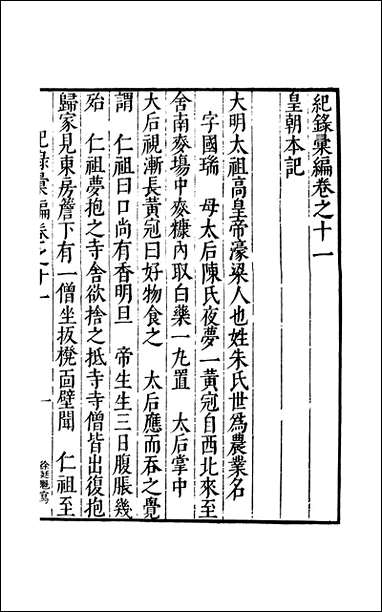 紀錄彙編卷之十一
皇朝本記
大明太祖高皇帝濠梁人也姓朱氏世爲農業名
字國瑞 母太后陳氏夜夢一黃冠自西北來至
舍南麥場中麥糠內取白藥一丸置 太后掌中
太后視漸長黃冠曰好物食之 太后應而吞之覺
謂 仁祖曰口尚有香明旦 帝生生三日腹脹幾
殆 仁祖夢抱之寺舍欲捨之抵寺寺僧皆出復抱
歸家見東房簷下有一僧坐板櫈面壁聞 仁祖至
紀錄彙編卷之十一 一